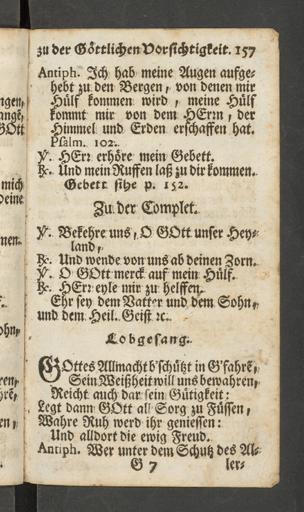 zu der Göttlichen Vorsichtigkeit. 157
Antiph. Ich hab meine Augen aufge-
hebt zu den Bergen, von denen mir
Hülf kommen wird, meine Hülf
kommt mir von dem HErrn, der
Himmel und Erden erschaffen hat.
Psalm. 102.
℣. HErr erhöre mein Gebett.
℟. Und mein Ruffen laß zu dir kommen.
Gebett sihe p. 152.
Zu der Complet.
℣. Bekehre uns, O GOtt unser Hey-
land,
℟. Und wende von uns ab deinen Zorn.
℣. O GOtt merck auf mein Hülf.
℟. HErr eyle mir zu helffen.
Ehr sey dem Vatter und dem Sohn,
und dem Heil. Geist ꝛc.
Lobgesang.
GOttes Allmacht b'schützt in G'fahrẽ,
Sein Weißheit will uns bewahren,
Reicht auch dar sein Gütigkeit:
Legt dann GOtt all Sorg zu Füssen,
Wahre Ruh werd ihr geniessen:
Und alldort die ewig Freud.
Antiph. Wer unter dem Schutz des Al-
G 7 ler-